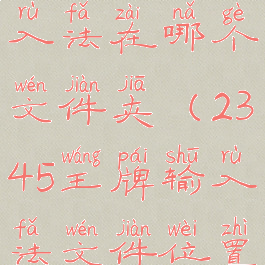 rù fǎ zài nǎ gè
入法在哪个
wén jiàn jiā
文件夹(23
wáng pái shū rù
45王牌输入
fǎ wén jiàn wèi zhì
法文件位置